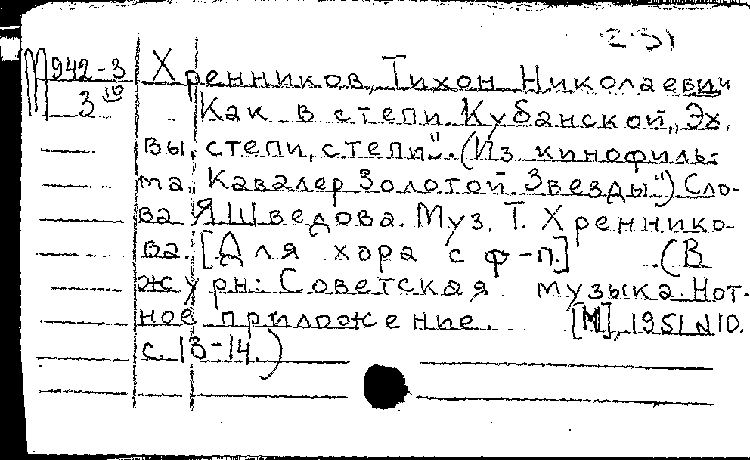 2-31
М 942-3 Хренников, Тихон Николаевич
3 Как в степи Кубанской „Эх,
вы, степи, степи". (Из кинофиль-
ма „Кавалер Золотой Звезды") Сло-
ва Я Шведова. Муз. Т. Хреннико-
ва. [Для хора с ф-п.] (В
журн: Советская музыка. Нот-
ное приложение. [М], 1951 №10.
с. 13-14.)